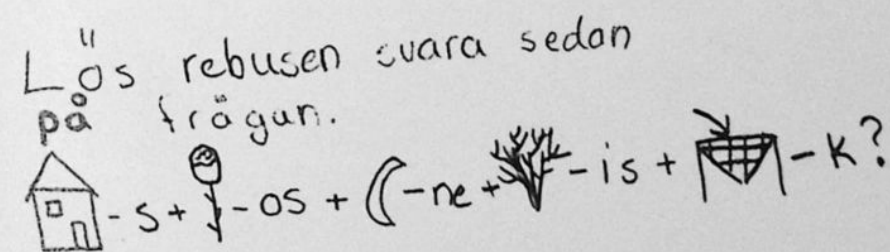 Lös rebusen svara sedan
på frågan.
-s+ -os + -ne+ -is + -k?